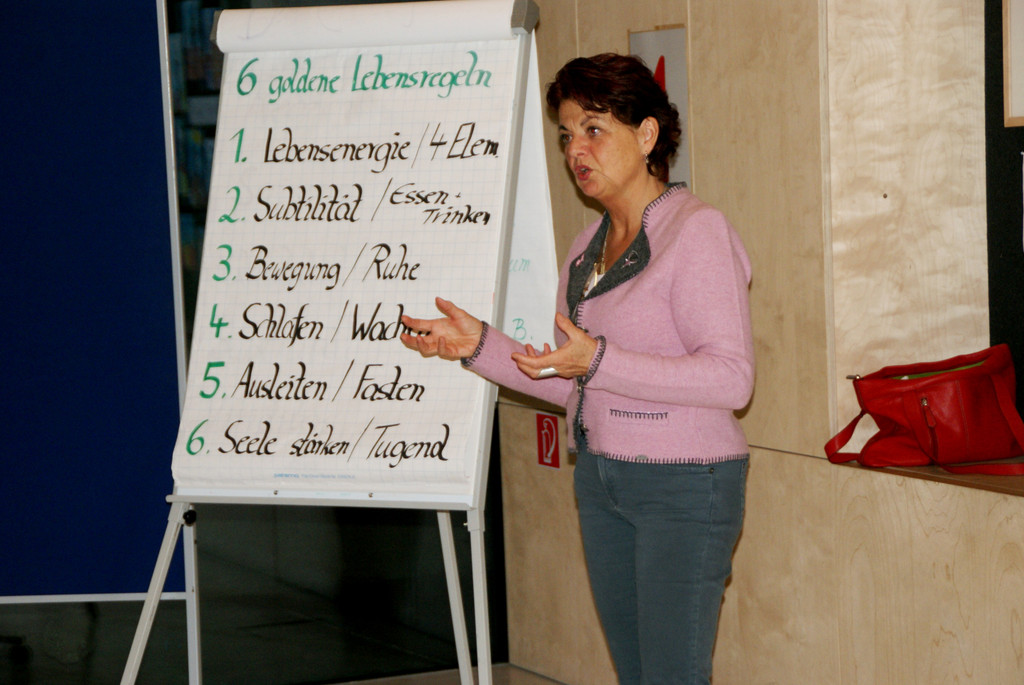 6 goldene Lebensregeln
1. Lebensenergie / 4 Elem.
2. Subtilität / Essen + Trinken
3. Bewegung / Ruhe
4. Schlafen / Wach
5. Ausleiten / Fasten
6. Seele stärken / Tugend
B.